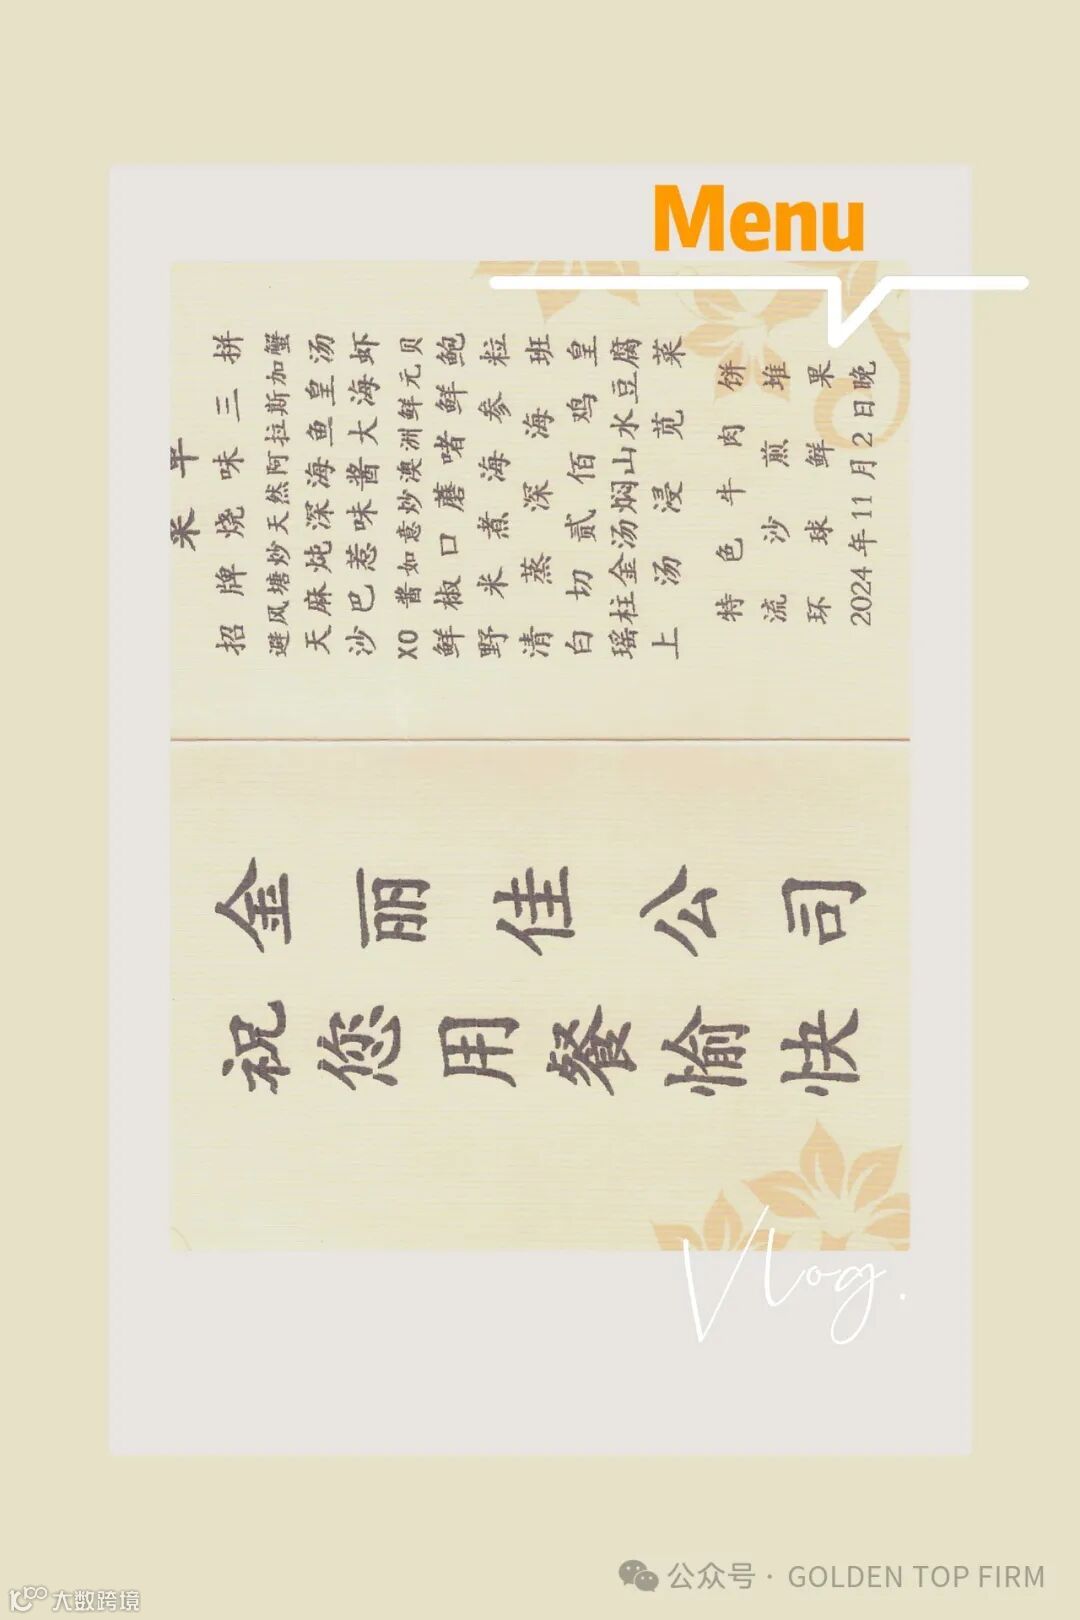 Menu
招牌烧味三拼
避风塘炒天然阿拉斯加蟹
天麻炖深海鱼皇汤
沙巴惹味酱大海虾
XO 酱如意炒澳洲鲜元贝
鲜椒口蘑啫鲜鲍
野米煮海参粒
清蒸深海班
白切贰佰鸡皇
瑶柱金汤焖山水豆腐
上汤浸苋菜
特色牛肉饼
流沙煎堆
环球鲜果
2024年11月2日晚
金丽佳公司
祝您用餐愉快
Vlog.
公众号 · GOLDEN TOP FIRM
大数跨境